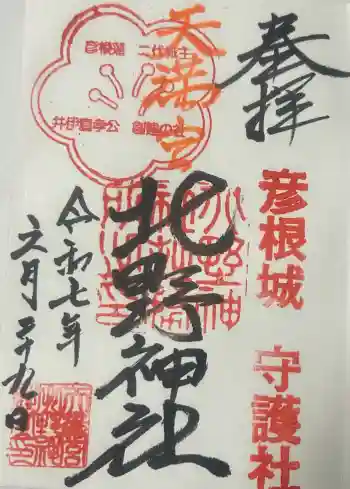 奉拝
彦根城 守護社
天満宮
彦根藩 二代藩主
井伊直孝公 創建の社
北野神社
令和七年
六月二十九日